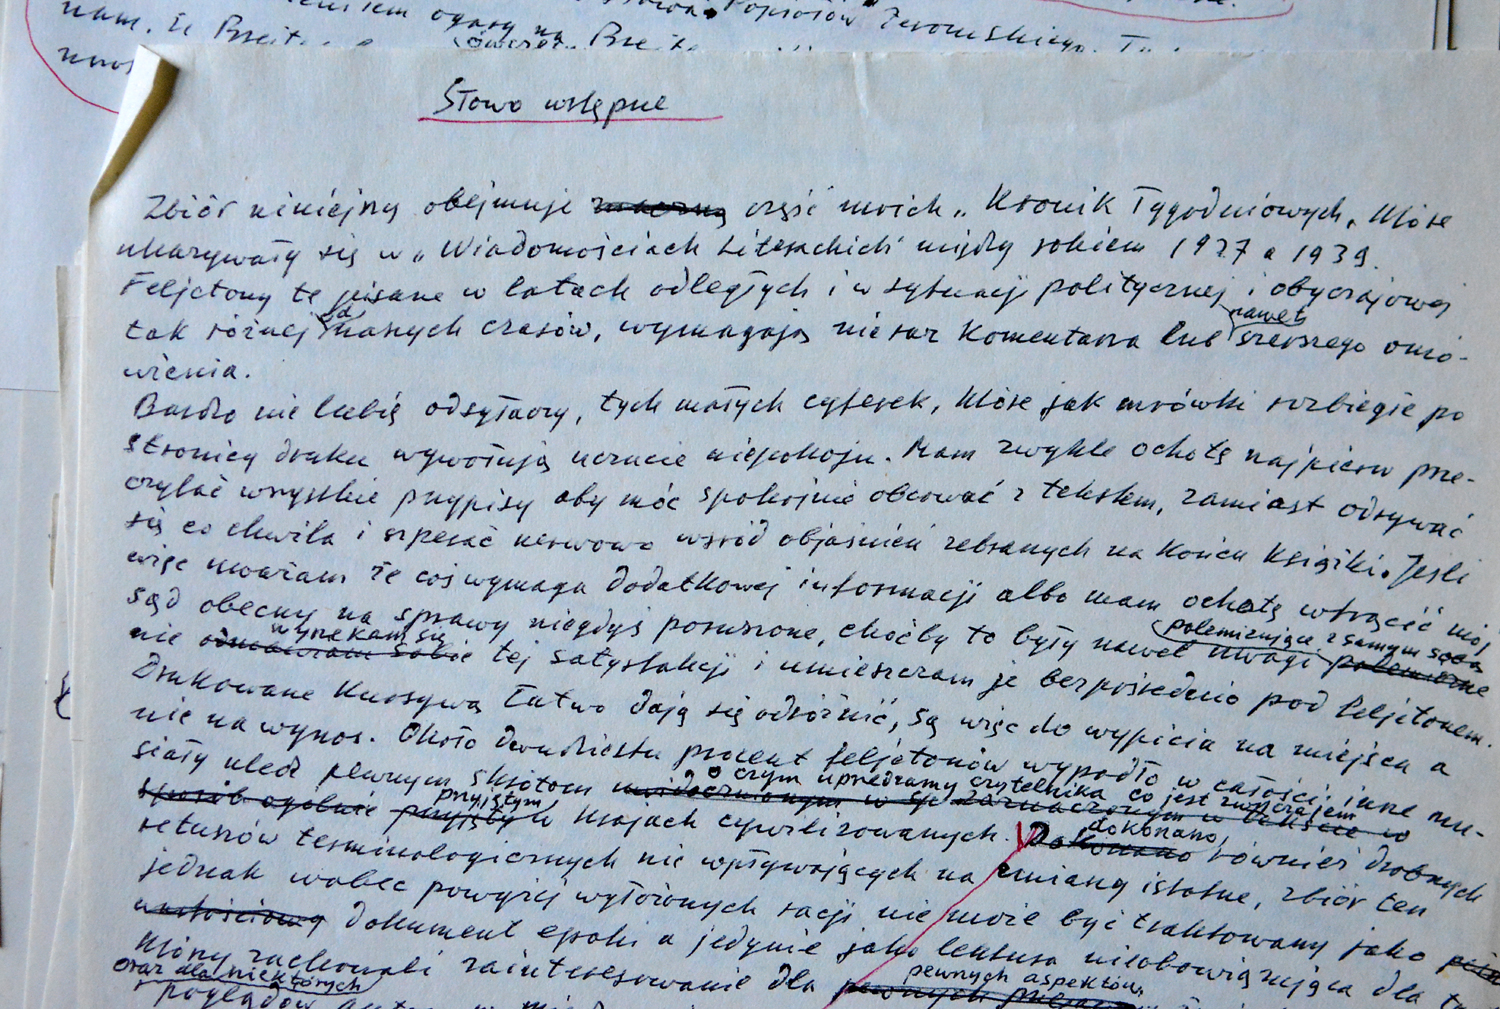 ogary na Popiołów Żeromskiego.
nam. że
Słowo wstępne
Zbiór niniejszy obejmuje znaczną część moich „Kronik Tygodniowych„ które
ukazywały się w „Wiadomościach Literackich" między rokiem 1927 a 1939.
Feljetony te pisane w latach odległych i w sytuacji politycznej i obyczajowej
tak różnej od naszych czasów, wymagają nieraz komentarza lub nawet szerszego omó-
wienia.
Bardzo nie lubię odsyłaczy, tych małych cyferek, które jak mrówki rozbiegłe po
stronicy druku wywołują uczucie niepokoju. Mam zwykle ochotę najpierw prze-
czytać wszystkie przypisy aby móc spokojnie obcować z tekstem, zamiast odrywać
się co chwila i szperać nerwowo wśród objaśnień zebranych na końcu książki. Jeśli
więc uważam że coś wymaga dodatkowej informacji albo mam ochotę wtrącić mój
sąd obecny na sprawy niegdyś poruszone, choćby to były nawet uwagi polemizujące z samym sobą polemiczne
nie odmawiam sobie wyrzekam się tej satysfakcji i umieszczam je bezpośrednio pod feljetonem.
Drukowane kursywą łatwo dają się odróżnić, są więc do wypicia na miejscu a
nie na wynos. Około dwudziestu procent feljetonów wypadło w całości, inne mu-
siały ulec pewnym skrótom o czym uprzedzamy czytelnika co jest zwyczajem
sposób ogólnie przyjęty przyjętym w krajach cywilizowanych. Dokonano dokonano również drobnych
retuszów terminologicznych nie wpływających na zmiany istotne, zbiór ten
jednak wobec powyżej wyłożonych racji nie może być traktowany jako
wartościowy dokument epoki a jedynie jako lektura nieobowiązująca dla
którzy zachowali zainteresowanie dla pewnych aspektów
oraz dla niektórych
poglądów